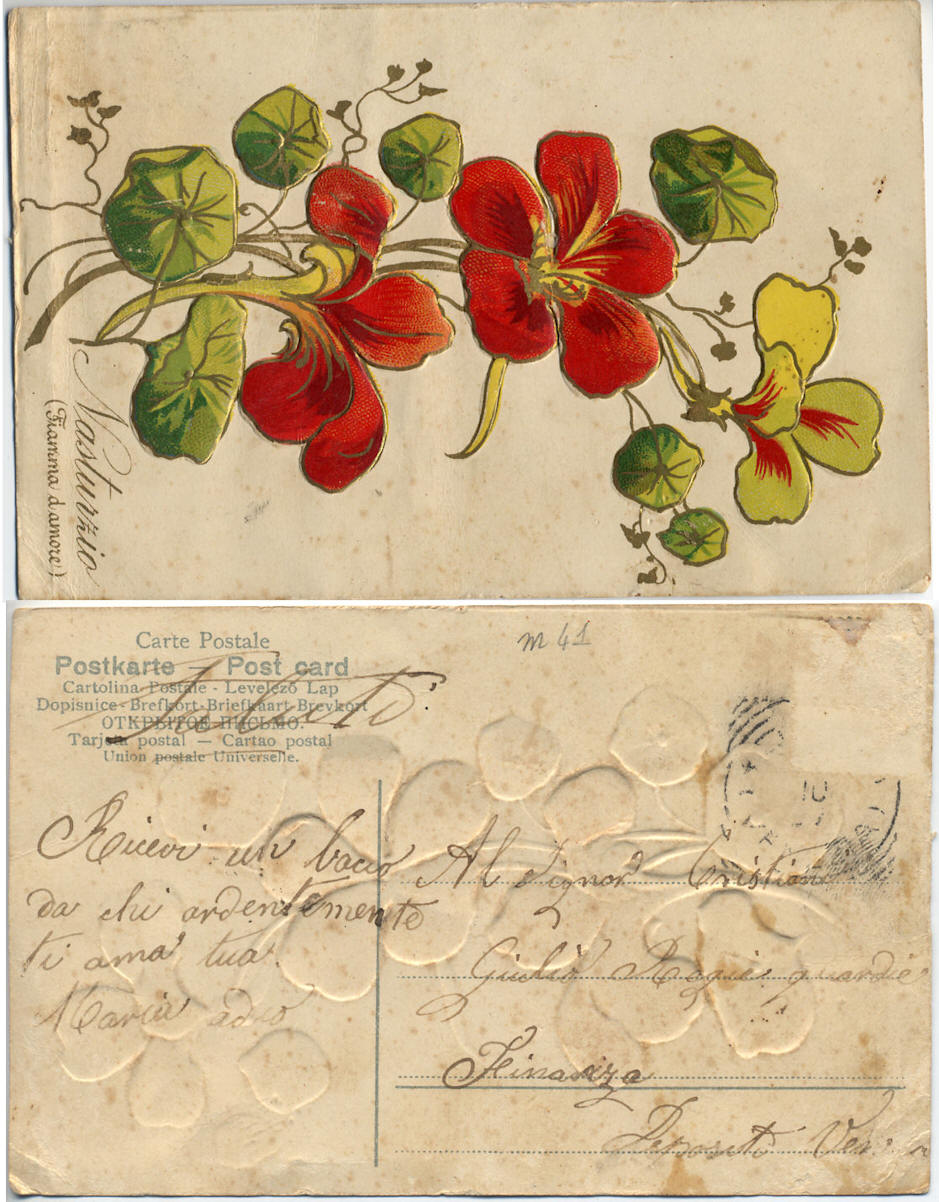 Nasturzio
(Fiamma d'amore)
m 41
Carte Postale
Postkarte — Post card
Cartolina Postale - Levelező Lap
Dopisnice - Brefkort - Briefkaart - Brevkort
ОТКРЫТОЕ ПИСЬМО
Tarjeta postal — Cartao postal
Union postale Universelle.
Saluti
Ricevi un bacio
da chi ardentemente
ti ama tua
Maria adio
10
Al Signor Cristian
Giulio Regie guardie
Finanza
Deposito